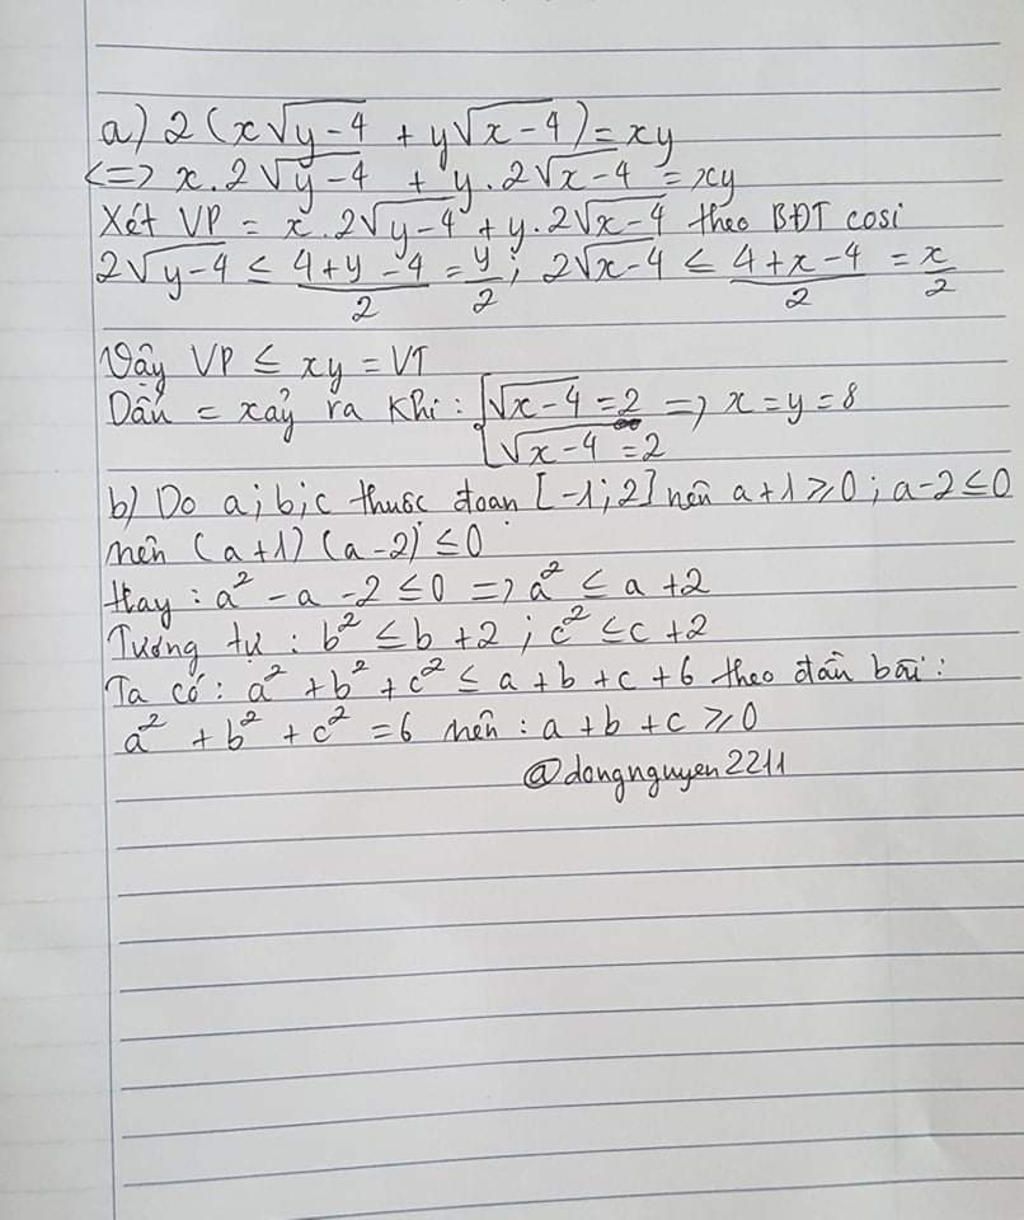 a) 2 (x√y-4 + y√x-4) = xy
<=> x.2√y-4 + y.2√x-4 = xy
Xét VP = x.2√y-4 + y.2√x-4 theo BĐT cosi
2√y-4 ≤ 4+y-4/2 = y/2; 2√x-4 ≤ 4+x-4/2 = x/2
Vậy VP ≤ xy = VT
Dấu = xảy ra khi: [√x-4 = 2 => x=y=8
√x-4 = 2
b) Do a;b;c thuộc đoạn [-1;2] nên a+1≥0; a-2≤0
nên (a+1)(a-2) ≤0
Hay: a² - a - 2 ≤ 0 => a² ≤ a + 2
Tương tự: b² ≤ b + 2; c² ≤ c + 2
Ta có: a² + b² + c² ≤ a + b + c + 6 theo đầu bài:
a² + b² + c² = 6 nên: a + b + c ≥ 0
@dongnguyen2211